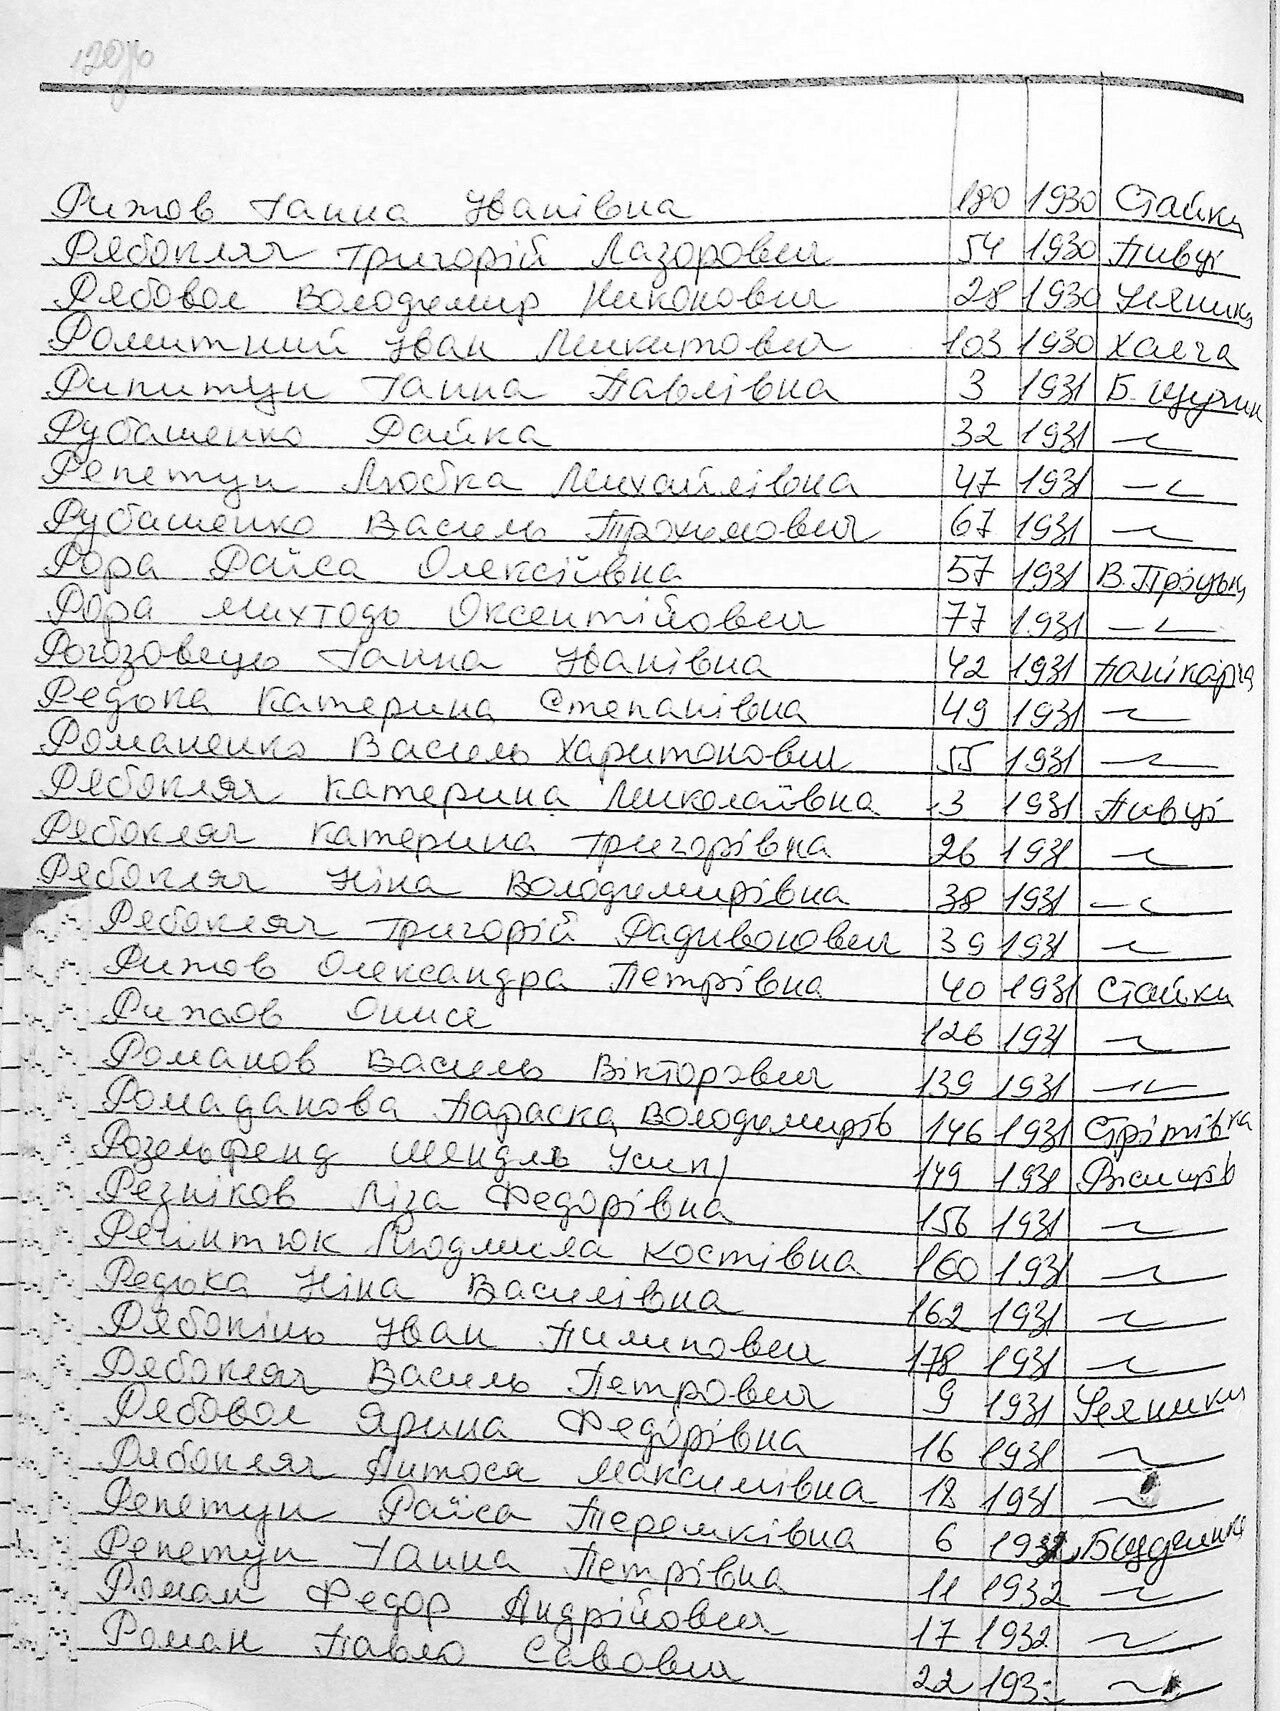 Рижов Ганна Іванівна 180 1930 Стайки
Рябокляч Григорій Лазорович 54 1930 Пивці
Рябовол Володимир Никонович 28 1930 Уляники
Ромитний Іван Микитович 103 1930 Халча
Рипитун Ганна Павлівна 3 1931 Б. Щучин
Рубашенко Райка 32 1931 -"-
Репетун Любка Михайлівна 47 1931 -"-
Рубашенко Василь Трохимович 67 1931 -"-
Рора Раїса Олексіївна 57 1931 В. Пріцьки
Рора Михтодь Оксентійович 77 1931 -"-
Рогозовець Ганна Іванівна 42 1931 Панікарча
Редька Катерина Степанівна 49 1931 -"-
Романенко Василь Харитонович 55 1931 -"-
Рябокляч Катерина Миколаївна 3 1931 Пивці
Рябокляч Катерина Григорівна 26 1931 -"-
Рябокляч Ніна Володимирівна 38 1931 -"-
Рябокляч Григорій Радивонович 39 1931 -"-
Рижов Олександра Петрівна 40 1931 Стайки
Рижов Онися 126 1931 -"-
Романов Василь Вікторович 139 1931 -"-
Ромаданова Параска Володимирів 146 1931 Стрітівка
Розельфенд Шендль Усип 149 1931 Ржищів
Резніков Ліза Федорівна 156 1931 -"-
Рейнтюк Людмила Костівна 160 1931 -"-
Редька Ніна Василівна 162 1931 -"-
Рябокінь Іван Пилипович 178 1931 -"-
Рябокляч Василь Петрович 9 1931 Уляники
Рябовол Ярина Федорівна 16 1931 -"-
Рябокляч Антося Максимівна 18 1931 -"-
Репетун Раїса Терешківна 6 1932
Репетун Ганна Петрівна 11 1932 -"-
Роман Федор Андрійович 17 1932 -"-
Роман Павло Савович 22 193 -"-